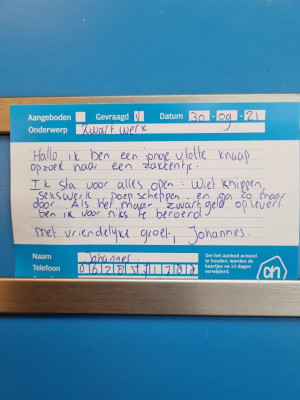 Aangeboden Gevraagd V Datum 30-09-21
Onderwerp Zwart werk
Hallo, ik ben een jonge vlotte knaap
opzoek naar een zakcentje.
Ik sta voor alles open: Wiet knippen,
Sekswerk, poep scheppen en ga zo maar
door. Als het maar zwart geld oplevert
ben ik voor niks te beroerd
Met vriendelijke groet, Johannes
Naam Johannes
Telefoon
Om het aanbod actueel
te houden, worden de
kaartjes na 14 dagen
verwijderd.
ah